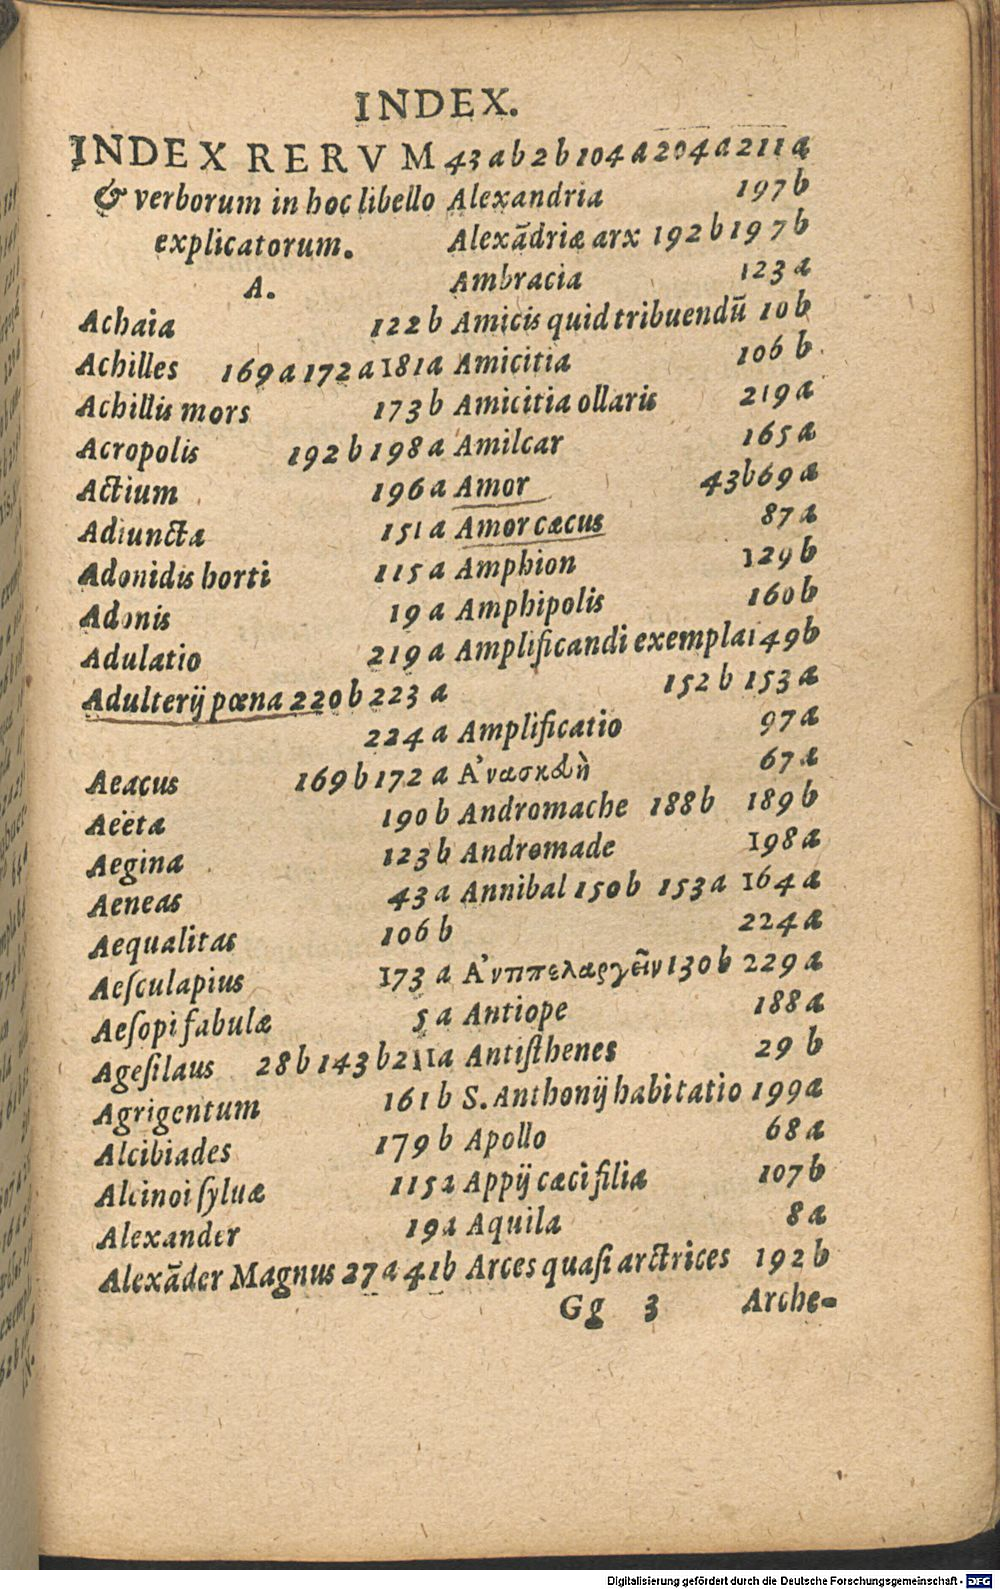 INDEX.
INDEX RERVM
& verborum in hoc libello
explicatorum.
A.
Achaia 122 b
Achilles 169 a 172 a 181 a
Achillis mors 173 b
Acropolis 192 b 198 a
Actium 196 a
Adiuncta 151 a
Adonidis horti 115 a
Adonis 19 a
Adulatio 219 a
Adulterij pœna 220 b 223 a
224 a
Aeacus 169 b 172 a
Aeëta 190 b
Aegina 123 b
Aeneas 43 a
Aequalitas 106 b
Aeſculapius 173 a
Aeſopi fabulæ 5 a
Ageſilaus 28 b 143 b 211a
Agrigentum 161 b
Alcibiades 179 b
Alcinoi ſyluæ 115 a
Alexander 19 a
Alexāder Magnus 27 a 41 b
43 a b 2 b 104 a 204 a 211 a
Alexandria 197 b
Alexādriæ arx 192 b 197 b
Ambracia 123 a
Amicis quid tribuendū 10 b
Amicitia 106 b
Amicitia ollaris 219 a
Amilcar 165 a
Amor 43 b 69 a
Amor cæcus 87 a
Amphion 129 b
Amphipolis 160 b
Amplificandi exempla 149 b
152 b 153 a
Amplificatio 97 a
67 a
Andromache 188 b 189 b
Andromade 198 a
Annibal 150 b 153 a 164 a
224 a
130 b 229 a
Antiope 188 a
Antiſthenes 29 b
S. Anthonij habitatio 199 a
Apollo 68 a
Appij cæci filia 107 b
Aquila 8 a
Arces quaſi arctrices 192 b
Gg 3 Arche-
Digitalisierung gefördert durch die Deutsche Forschungsgemeinschaft - DFG